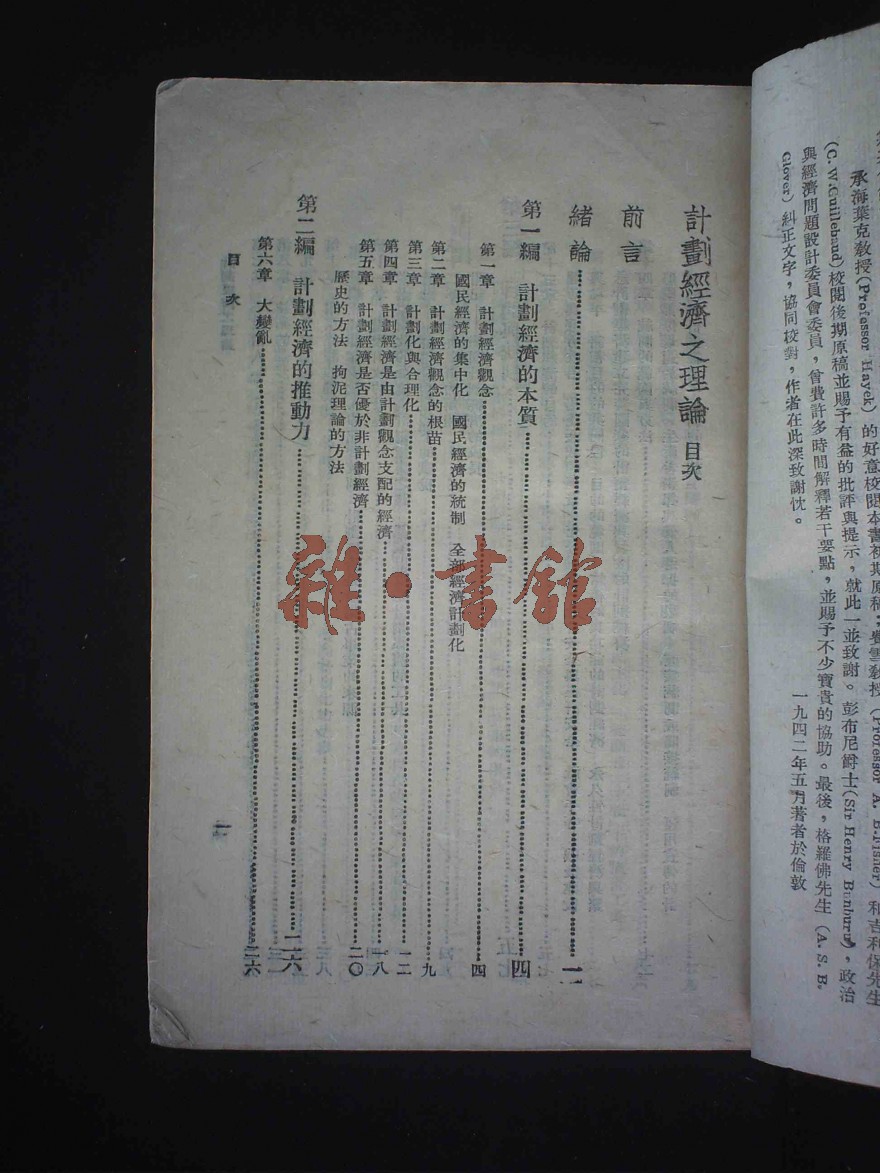 承海葉克教授(Professor Hayek)的好意校閱本書初期原稿,費雪教授(Professor A. B. Fisher)和吉利保先生
(C. W. Guillebaud)校閱後期原稿並賜予有益的批評與提示,就此一並致謝。彭布尼爵士(Sir Henry Bunbury),政治
與經濟問題設計委員會委員,曾費許多時間解釋若干要點,並賜予不少寶貴的協助。最後,格羅佛先生(A. S. B.
Glover)糾正文字,協同校對,作者在此深致謝忱。
一九四二年五月著者於倫敦
計劃經濟之理論 目次
前言
緒論……一
第一編 計劃經濟的本質……四
第一章 計劃經濟觀念……四
國民經濟的集中化 國民經濟的統制 全部經濟計劃化
第二章 計劃經濟觀念的根苗……九
第三章 計劃化與合理化……一二
第四章 計劃經濟是由計劃觀念支配的經濟……一八
第五章 計劃經濟是否優於非計劃經濟……二〇
歷史的方法 拘泥理論的方法
第二編 計劃經濟的推動力……二六
第六章 大變亂……二六
目次
一
雜·書館